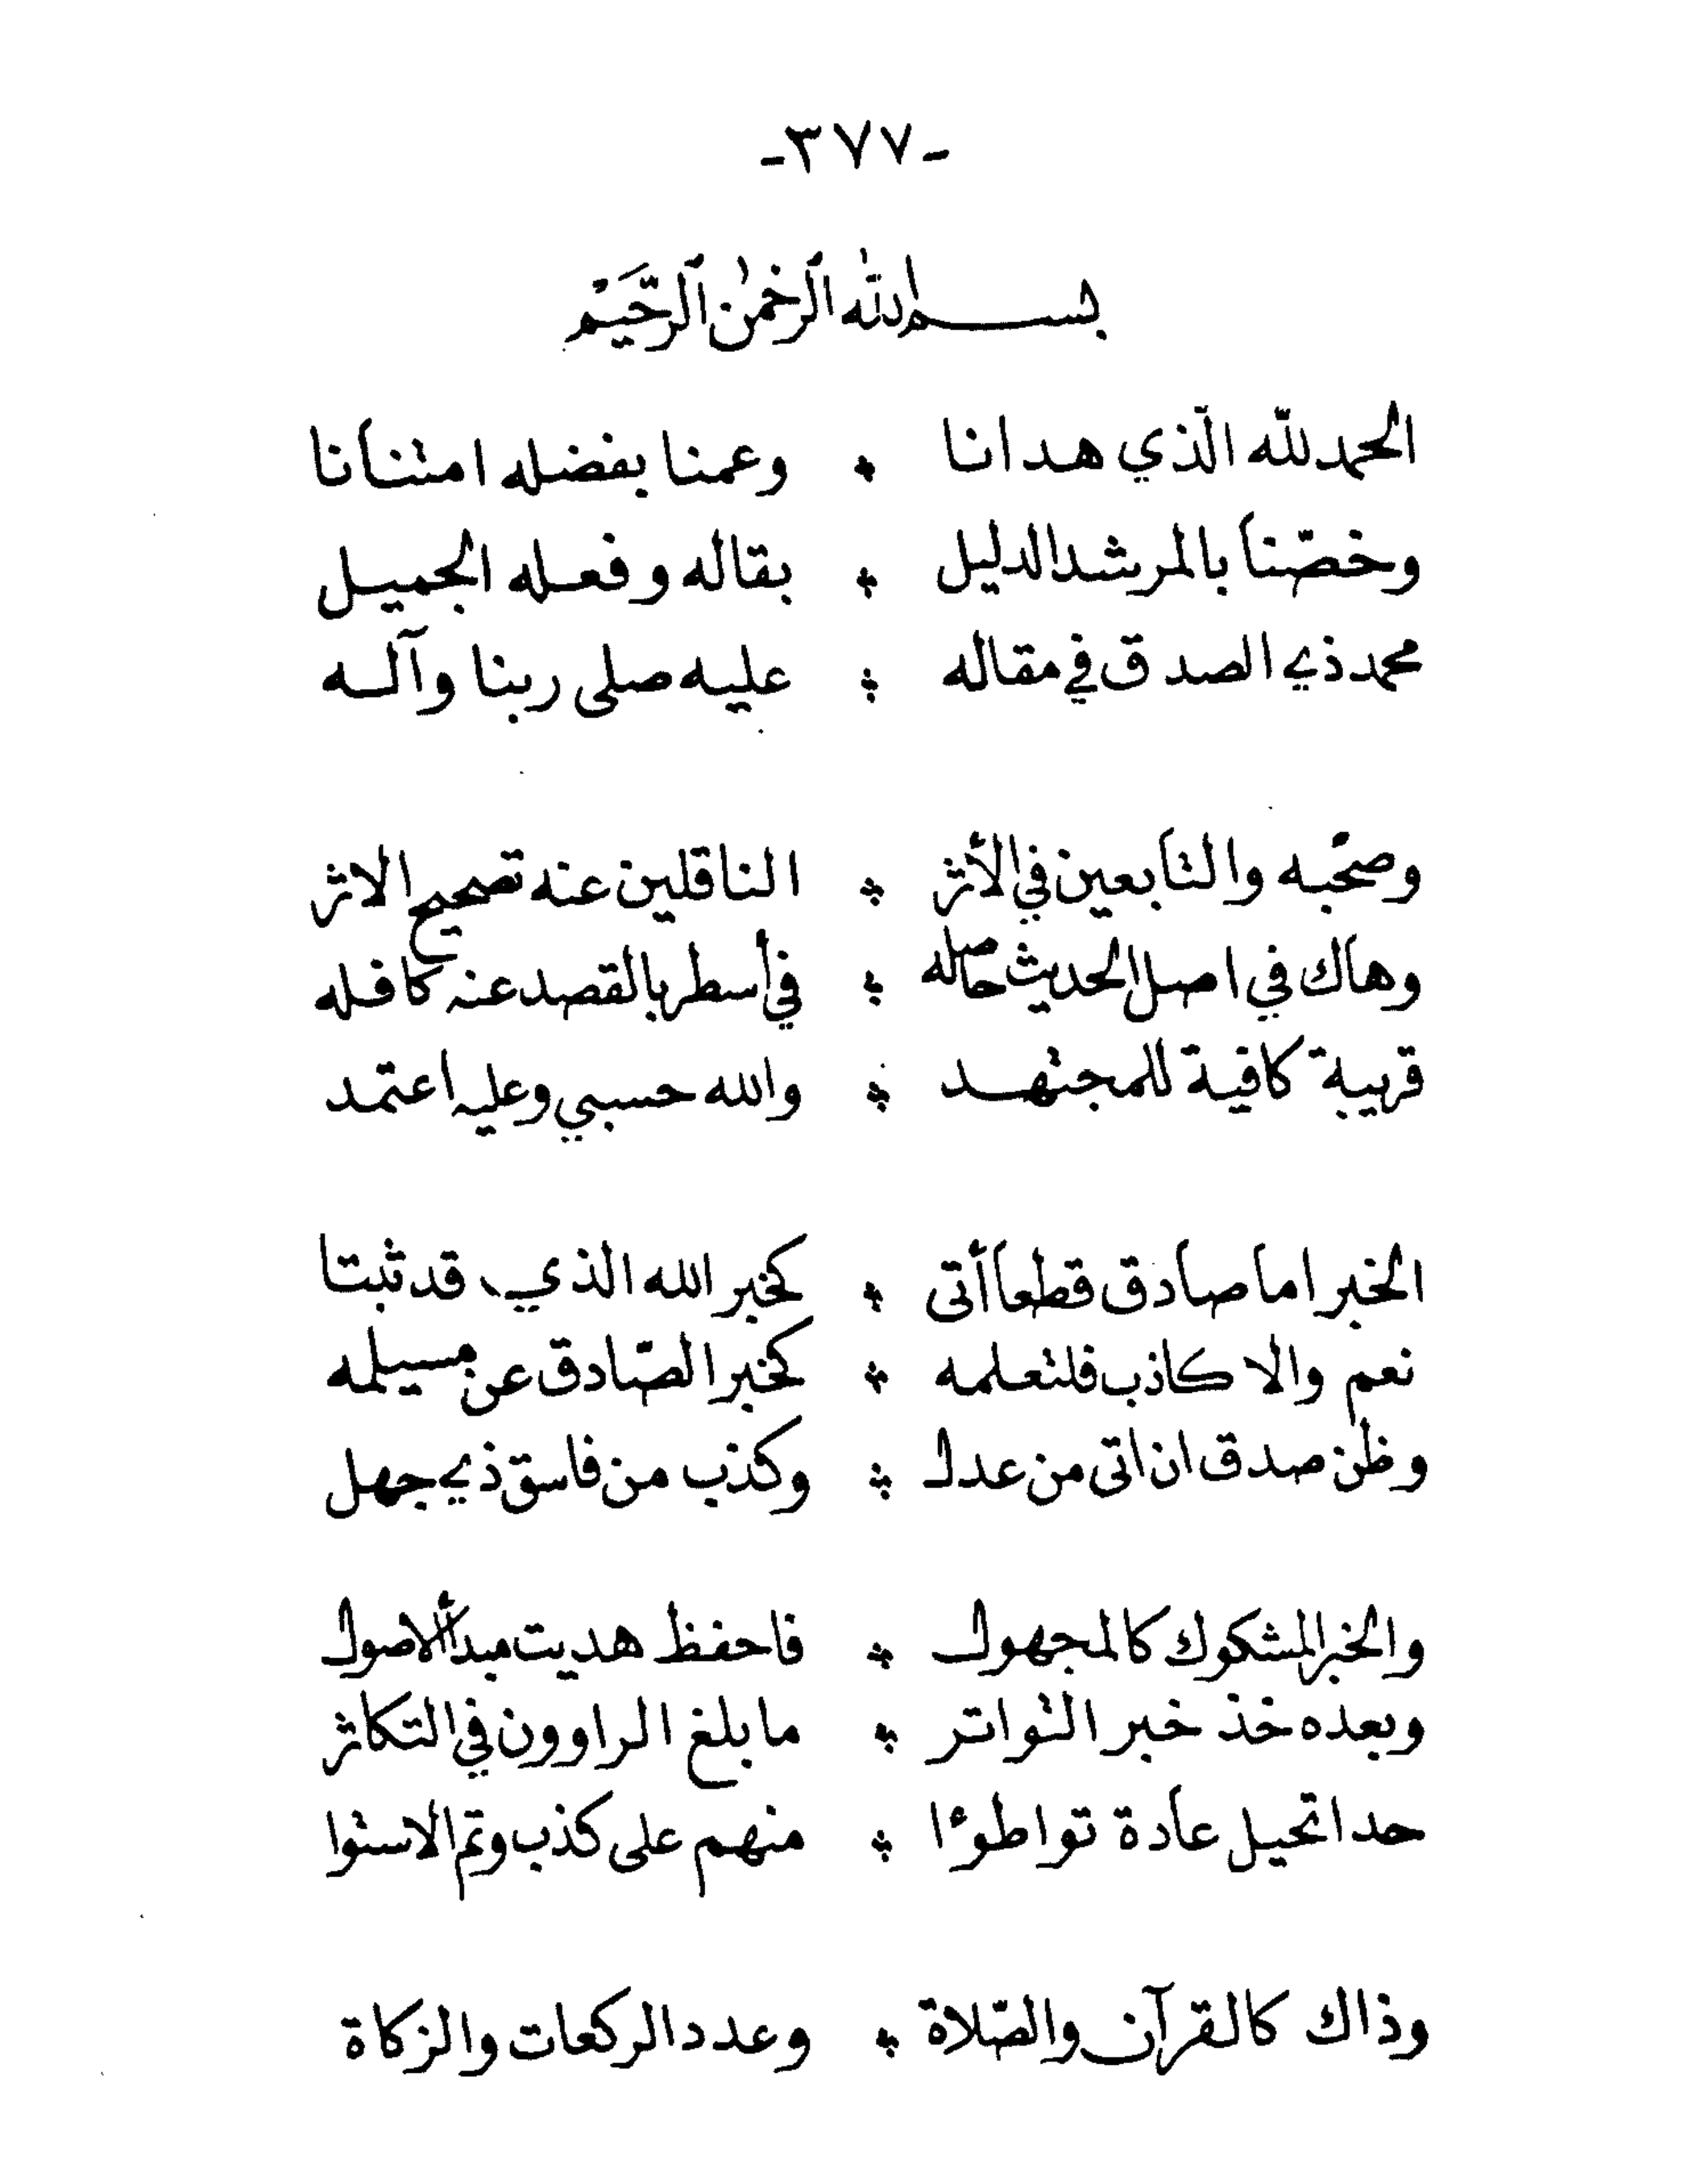 -٣٧٧-
بسم الله الرحمن الرحيم
الحمد لله الّذي هدانا * وعمنا بفضله امتنانا
وخصّنا بالمرشد الدليل * بقاله وفعله الجميل
محمد ذي الصدق في مقاله * عليه صلى ربنا وآله
وصحبه والتابعين في الأثر * الناقلين عنه تصحيح الاثر
وهاك في اصل الحديث حاصله * في أسطر بالقصد عنه كافله
قريبة كافية للمجتهد * والله حسبي وعليه اعتمد
الخبر اما صادق قطعا أتى * كخبر الله الذي قد ثبتا
نعم والا كاذب فلتعلمه * كخبر الصّادق عن مسيلمه
وظن صدق ان اتى من عدل * وكذب من فاسق ذي جهل
والخبر المشكوك كالمجهول * فاحفظ هديت مبدأ الاصول
وبعده خذ خبر التواتر * ما بلغ الراوون في التكاثر
حدا تحيل عادة تواطوءا * منهم على كذب وتم الاستوا
وذاك كالقرآن والصّلاة * وعدد الركعات والزكاة